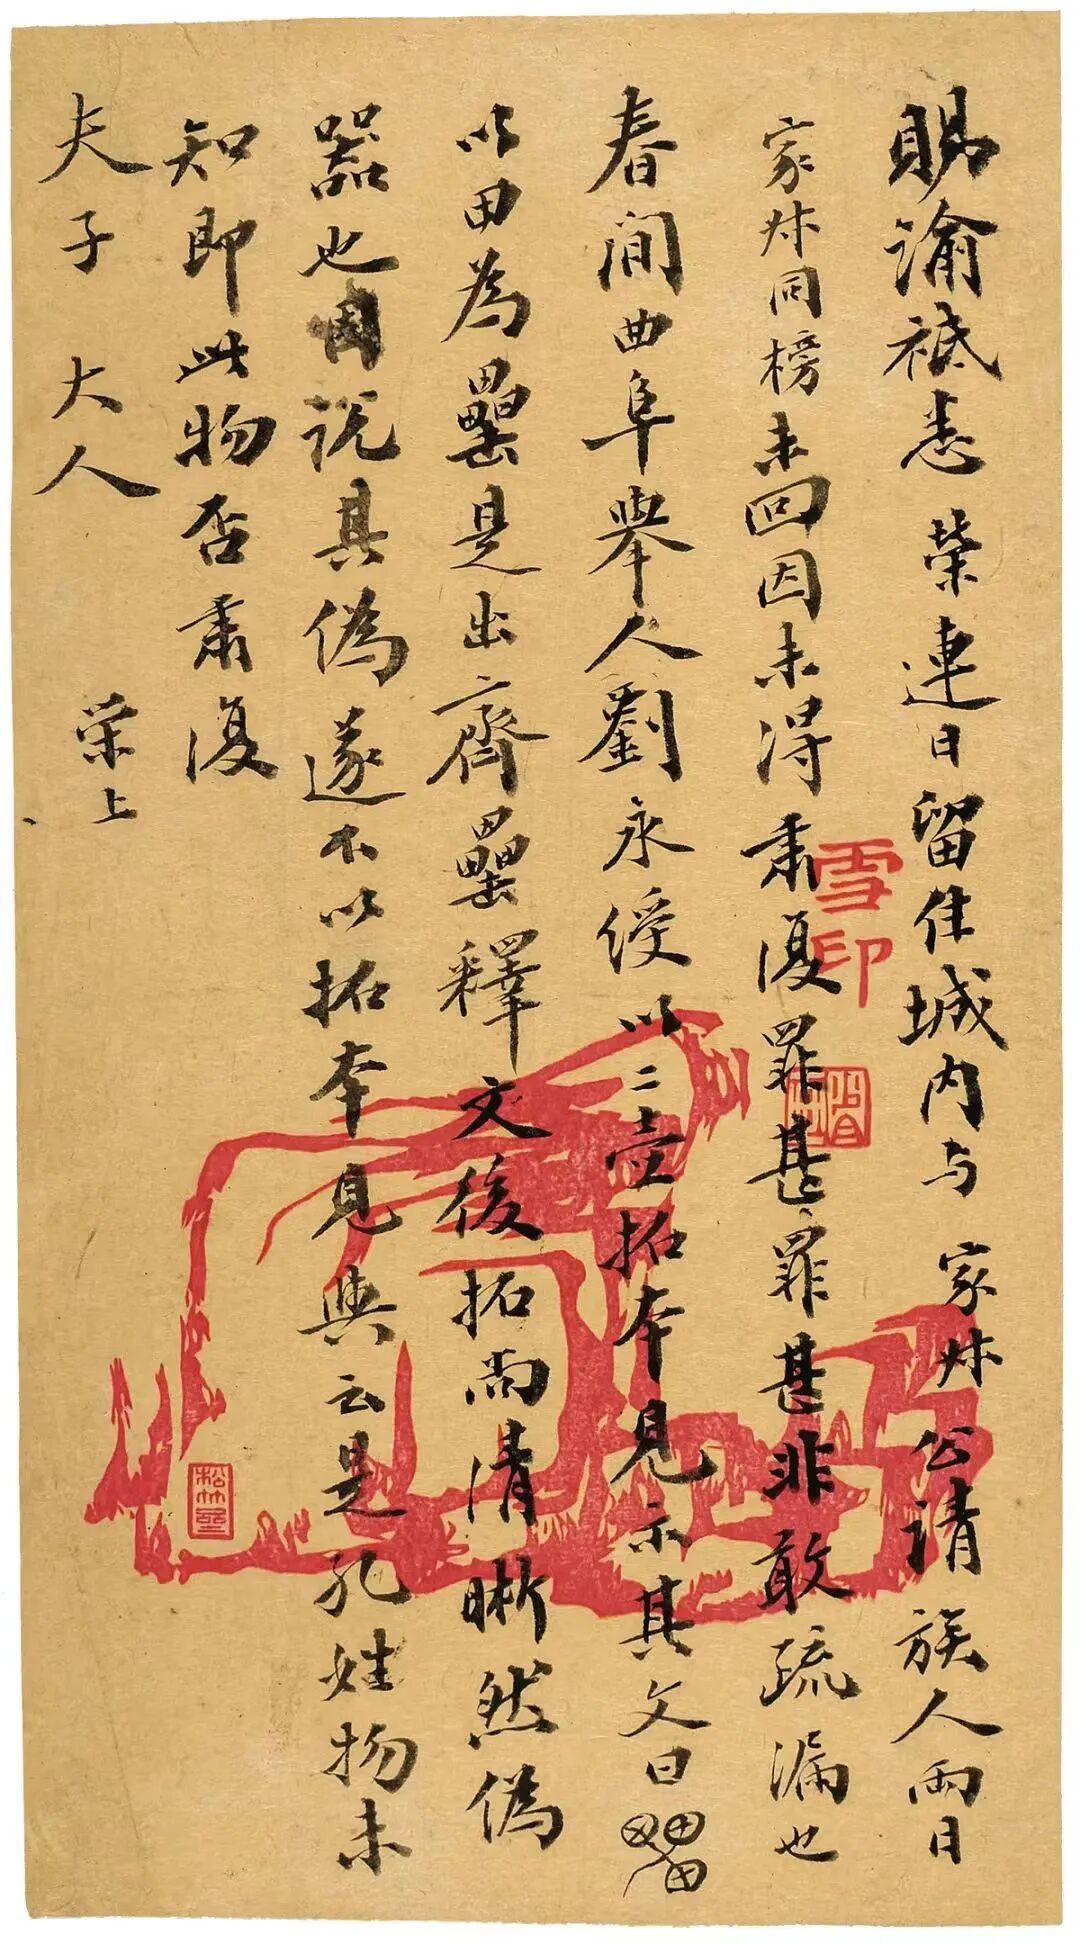 賜諭祗悉 榮連日留住城内与 家叔公請族人兩日
家叔同榜未回因未得肅復罪甚罪甚非敢疏漏也
春間曲阜舉人劉永綬以二壺拓本見示其文曰
以田為罍是出齊罍釋文後拓尚清晰然偽
器也因說其偽遂不以拓本見與云是孔姓物未
知即此物否肅復
夫子大人 荣上
雪印
松竹